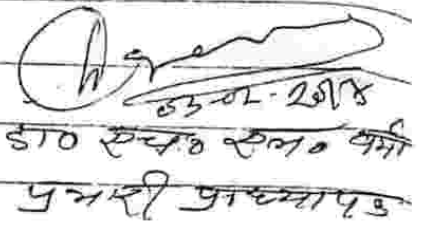 03-02-2018
डा० एच० एम० वर्मा
प्रभारी प्राध्यापक